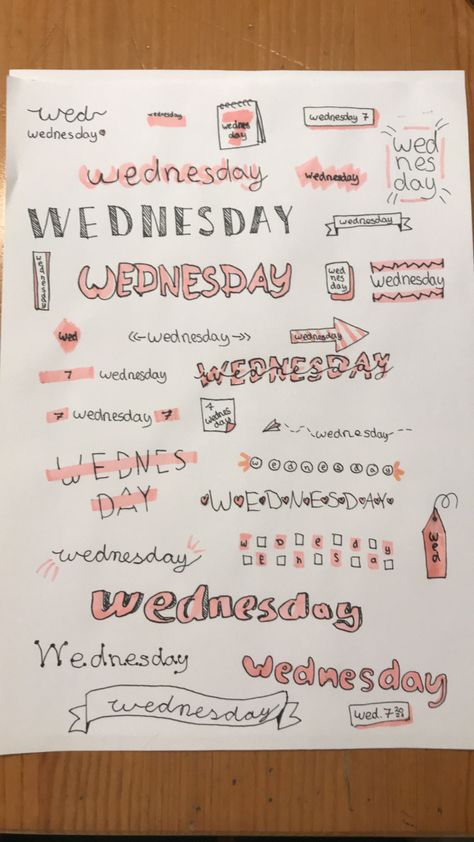 wed
wednesday
wednesday
wednes
day
wednesday 7
wed
nes
day
wednesday
wednesday
WEDNESDAY
wednesday
WEDNESDAY
WEDNESDAY
wed
nes
day
Wednesday
wed
wednesday
wednesday
7 wednesday
WEDNESDAY
7 wednesday 7
7
wednes
day
wednesday
WEDNES
DAY
wednesday
WEDNESDAY
wed
wednesday
wednesday
Wednesday
wednesday
wednesday
wed. 7